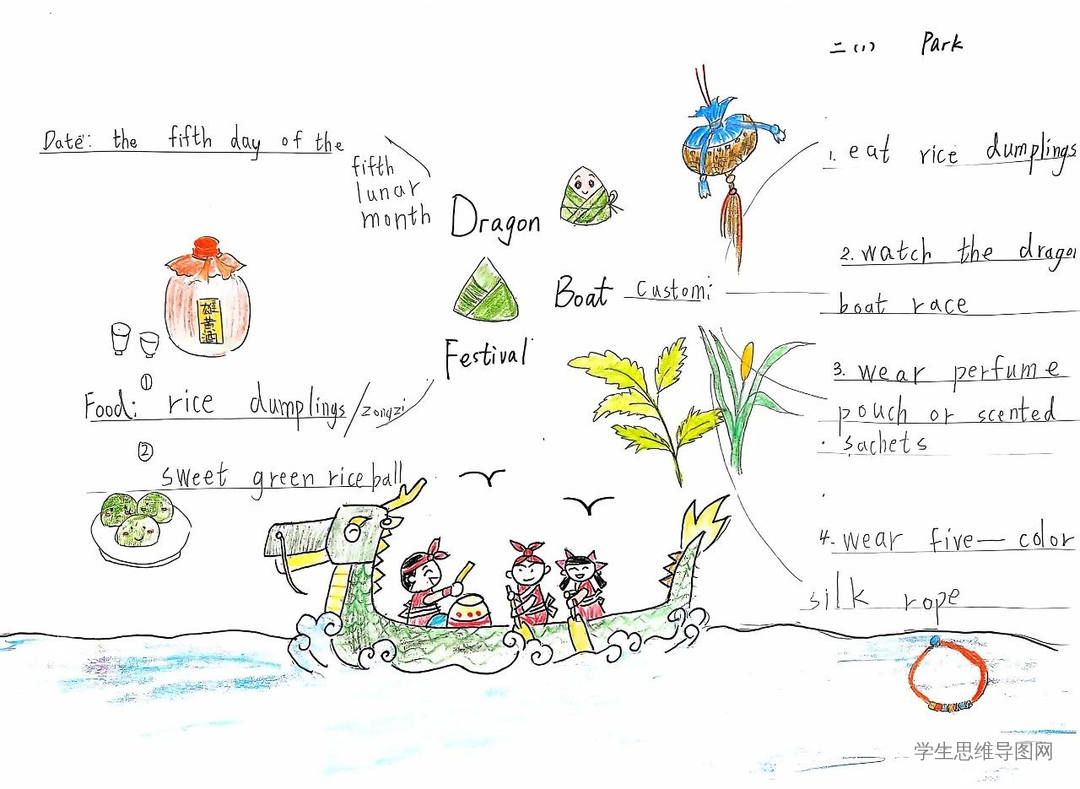 二(1) Park
Date: the fifth day of the
fifth
lunar
month
Dragon
Boat
Festival
Custom:
1. eat rice dumplings
2. watch the dragon
boat race
3. wear perfume
pouch or scented
sachets
4. wear five—color
silk rope
雄黄酒
Food: ① rice dumplings/zongzi
② sweet green rice ball
学生思维导图网